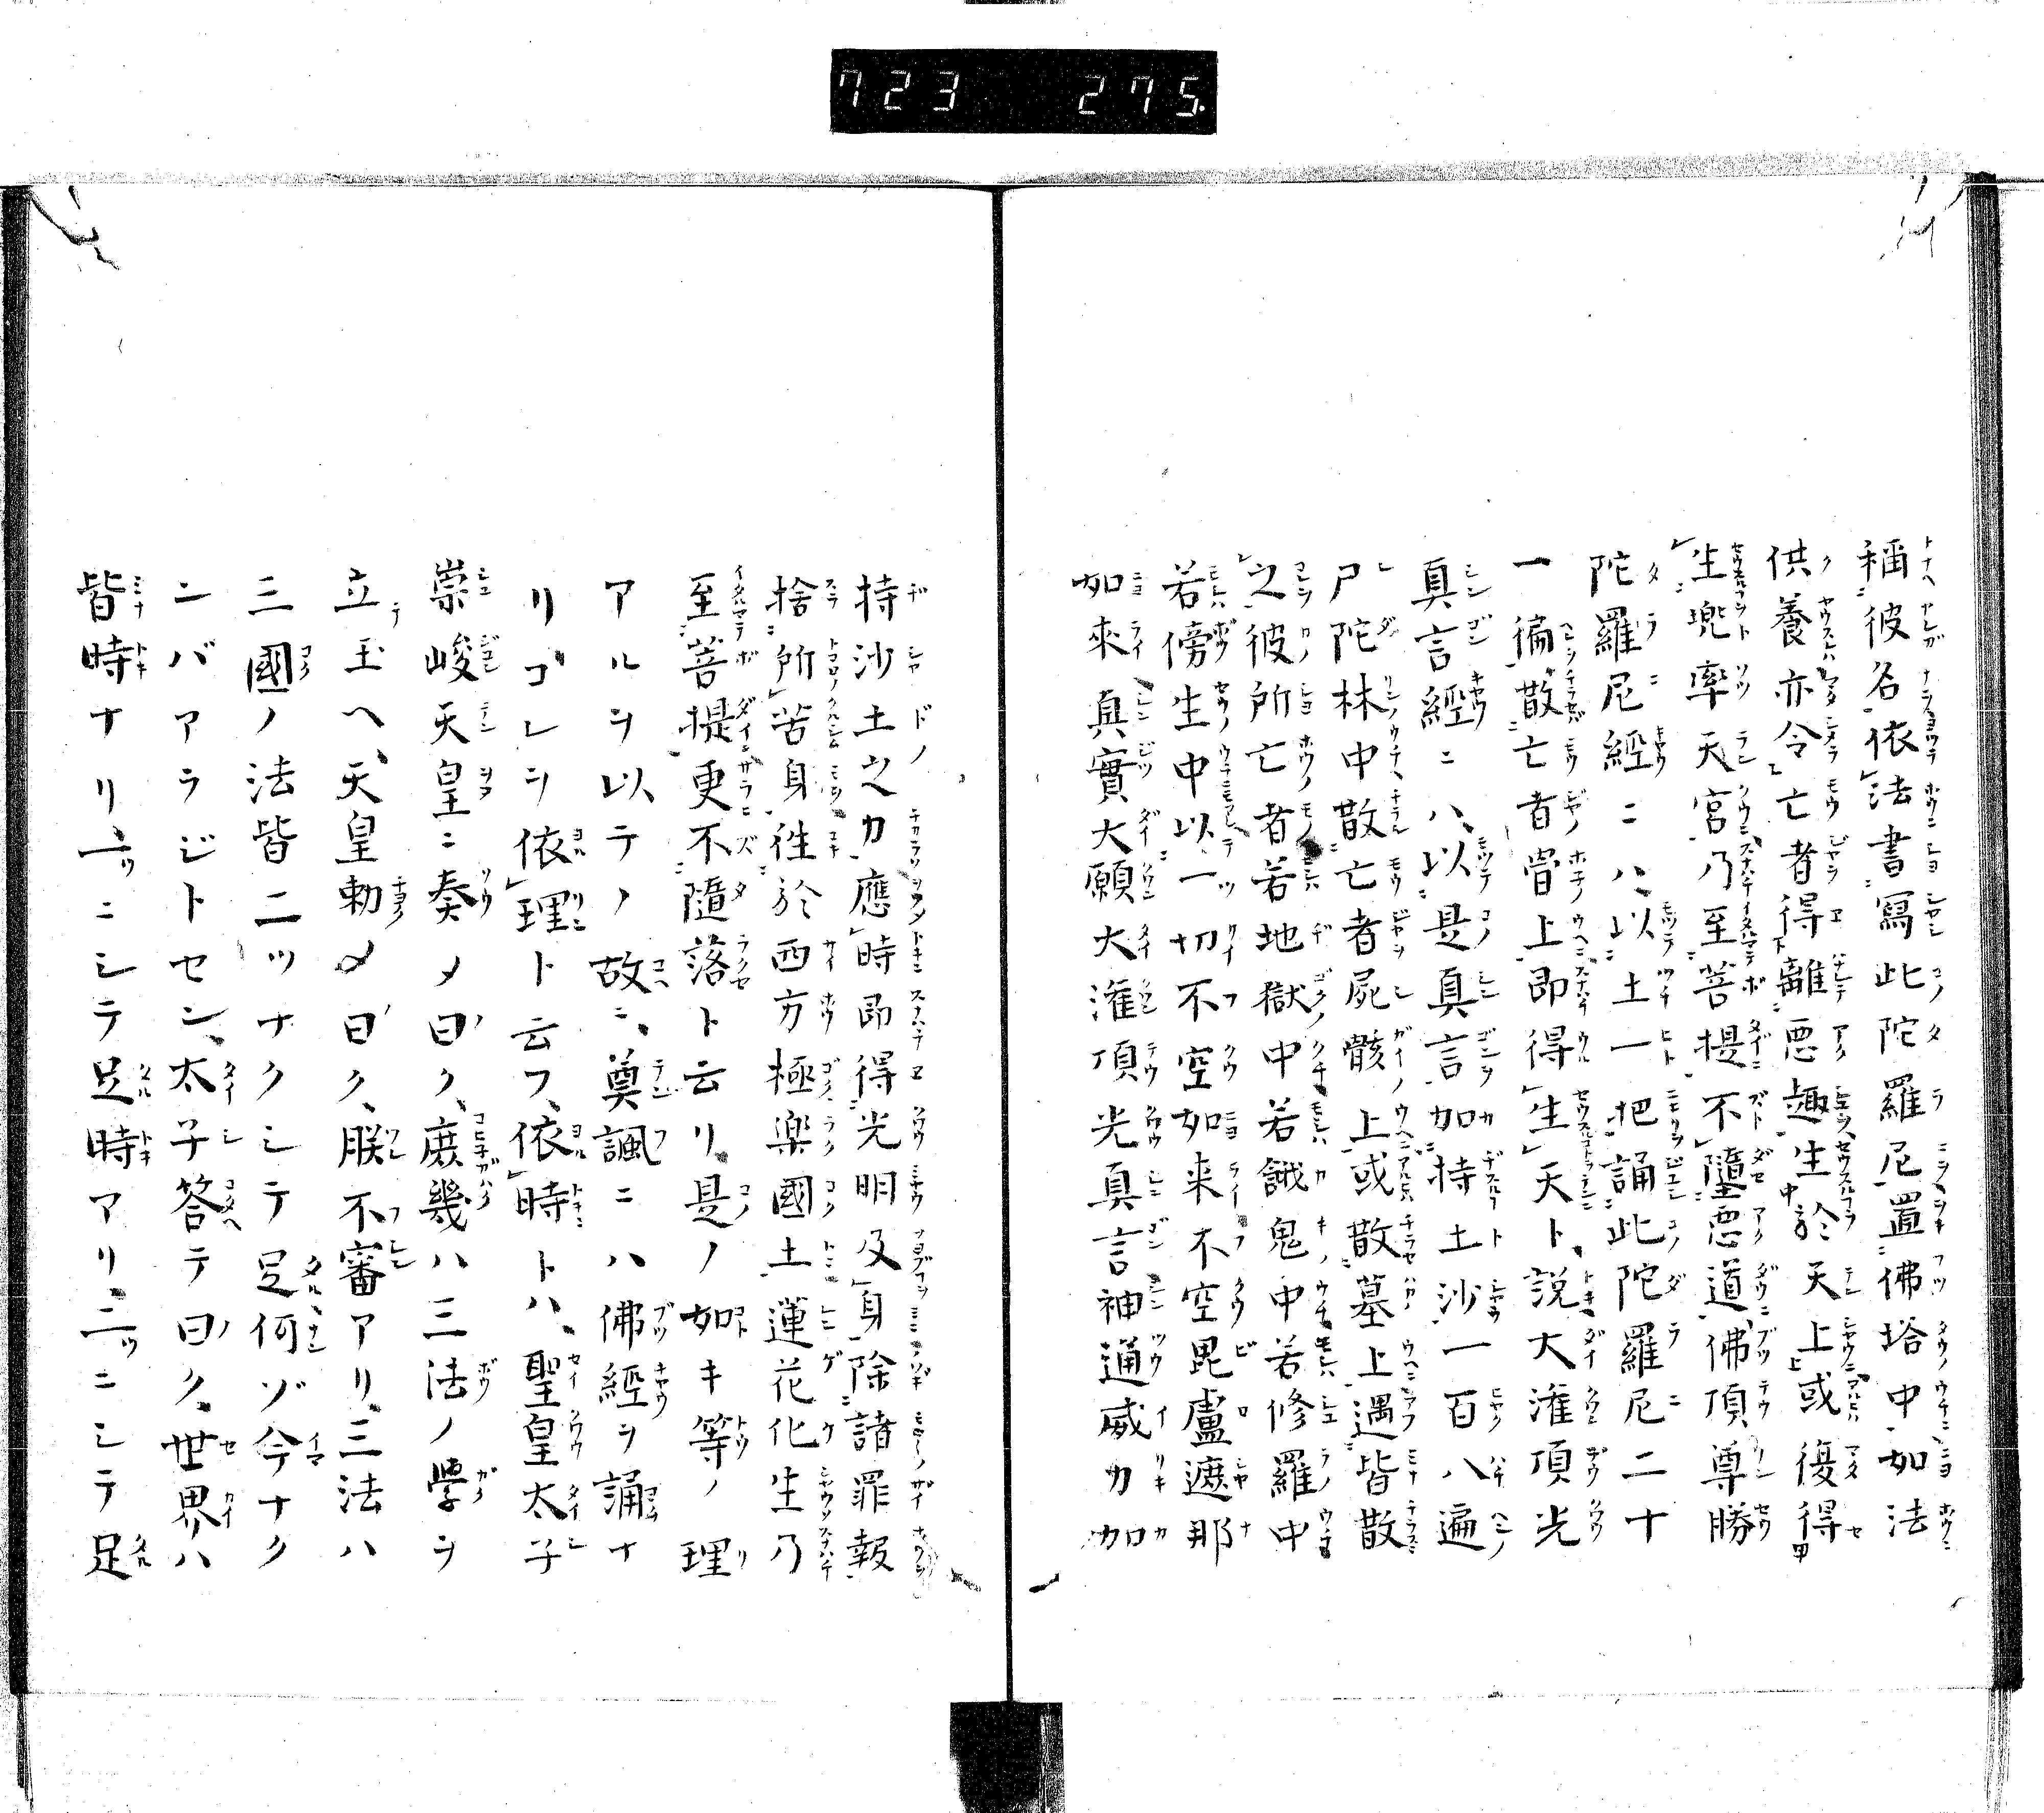 723 275.
稱彼名依法書寫此陀羅尼置佛塔中如法
供養亦令亡者得離惡趣生於天上或復得
生兜率天宮乃至菩提不墮惡道佛頂尊勝
陀羅尼經ニハ以土一把誦此陀羅尼二十
一徧散亡者骨上即得生天ト、説大潅頂光
真言經ニハ、以是真言加持土沙一百八遍
尸陀林中散亡者屍骸上或散墓上遇皆散
之彼所亡者若地獄中若餓鬼中若修羅中
若傍生中以一切不空如来不空毘盧遮那
如來真實大願大潅頂光真言神通威力加
持沙土之力應時即得光明及身除諸罪報
捨所苦身徃於西方極楽國土蓮花化生乃
至菩提更不隨落ト云リ是ノ如キ等ノ理
アルヲ以テノ故ニ、奠諷ニハ佛經ヲ誦ナ
リ、コレヲ依理ト云フ、依時トハ、聖皇太子
崇峻天皇ニ奏メ曰ク、庶幾ハ三法ノ學ヲ
立玉ヘ、天皇勅メ曰ク、朕不審アリ、三法ハ
三國ノ法皆二ツナクシテ足何ゾ今ナク
ンバアラジトセン、太子答テ曰ク、世界ハ
皆時ナリ、一ツニシテ足時アリ、二ツニシテ足